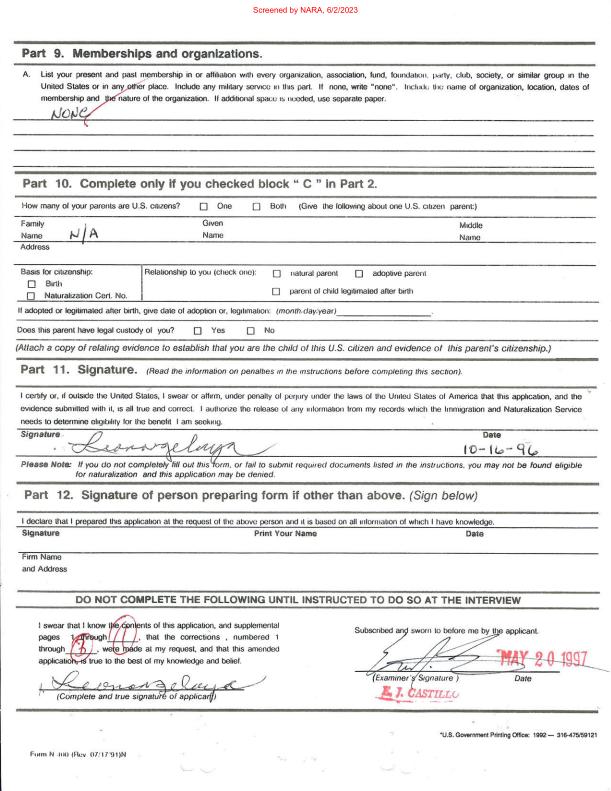 Screened by NARA, 6/2/2023
Part 9. Memberships and organizations.
A. List your present and past membership in or affiliation with every organization, association, fund, foundation, party, club, society, or similar group in the
United States or in any other place. Include any military service in this part. If none, write "none". Include the name of organization, location, dates of
membership and the nature of the organization. If additional space is needed, use separate paper.
NONE
Part 10. Complete only if you checked block " C " in Part 2.
How many of your parents are U.S. citizens? One Both (Give the following about one U.S. citizen parent:)
Family Given Middle
Name N/A Name Name
Address
Basis for citizenship: Relationship to you (check one): natural parent adoptive parent
Birth
parent of child legitimated after birth
Naturalization Cert. No.
If adopted or legitimated after birth, give date of adoption or, legitimation: (month-day-year)
Does this parent have legal custody of you? Yes No
(Attach a copy of relating evidence to establish that you are the child of this U.S. citizen and evidence of this parent's citizenship.)
Part 11. Signature. (Read the information on penalties in the instructions before completing this section).
I certify or, if outside the United States, I swear or affirm, under penalty of perjury under the laws of the United States of America that this application, and the
evidence submitted with it, is all true and correct. I authorize the release of any information from my records which the Immigration and Naturalization Service
needs to determine eligibility for the benefit I am seeking.
Signature Date
10-16-96
Please Note: If you do not completely fill out this form, or fail to submit required documents listed in the instructions, you may not be found eligible
for naturalization and this application may be denied.
Part 12. Signature of person preparing form if other than above. (Sign below)
I declare that I prepared this application at the request of the above person and it is based on all information of which I have knowledge.
Signature Print Your Name Date
Firm Name
and Address
DO NOT COMPLETE THE FOLLOWING UNTIL INSTRUCTED TO DO SO AT THE INTERVIEW
I swear that I know the contents of this application, and supplemental
pages 1 through , that the corrections , numbered 1
through 3 , were made at my request, and that this amended
application, is true to the best of my knowledge and belief.
(Complete and true signature of applicant)
Subscribed and sworn to before me by the applicant.
MAY 20 1997
(Examiner's Signature ) Date
E. J. CASTILLO
*U.S. Government Printing Office: 1992 — 316-475/59121
Form N-400 (Rev. 07/17/91)N